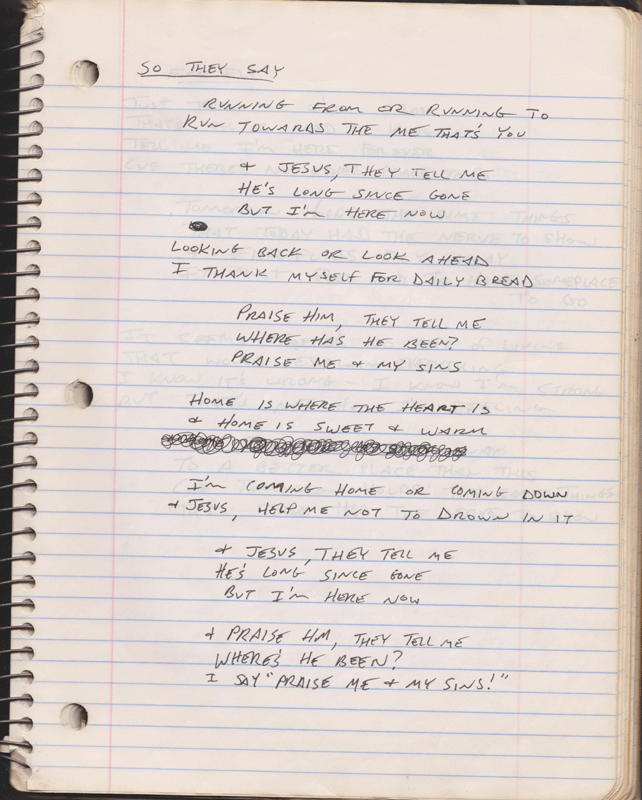 SO THEY SAY
RUNNING FROM OR RUNNING TO
RUN TOWARDS THE ME THAT'S YOU
& JESUS, THEY TELL ME
HE'S LONG SINCE GONE
BUT I'm HERE NOW
LOOKING BACK OR LOOK AHEAD
I THANK MYSELF FOR DAILY BREAD
PRAISE HIM, THEY TELL ME
WHERE HAS HE BEEN?
PRAISE ME & MY SINS
HOME IS WHERE THE HEART IS
& HOME IS SWEET & WARM
I'm COMING HOME OR COMING DOWN
& JESUS, HELP ME NOT TO DROWN IN IT
& JESUS, THEY TELL ME
HE'S LONG SINCE GONE
BUT I'm HERE NOW
& PRAISE HIM, THEY TELL ME
WHERE'S HE BEEN?
I SAY "PRAISE ME & MY SINS!"